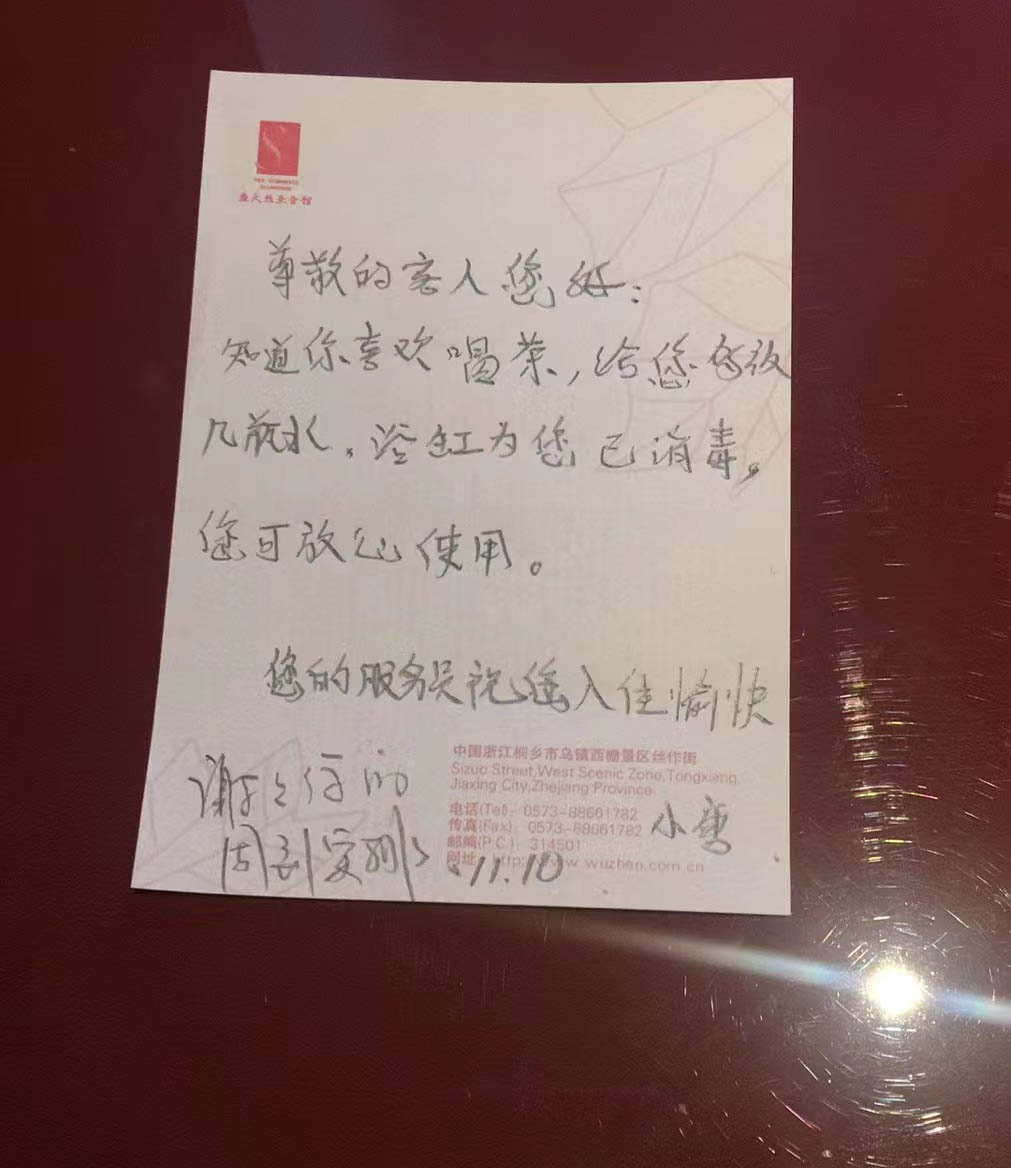 盛大林业会馆
尊敬的客人您好：
知道你喜欢喝茶，给您多放
几瓶水，浴缸为您已消毒。
您可放心使用。
您的服务员祝您入住愉快
中国浙江桐乡市乌镇西栅景区丝作街
Sizuo Street,West Scenic Zone,Tongxiang
Jiaxing City,Zhejiang Province
电话(Tel): 0573-88661782
传真(Fax): 0573-88661782
邮编(P.C.): 314501
网址: http://www.wuzhen.com.cn
小
谢谢你的
周到
11.10